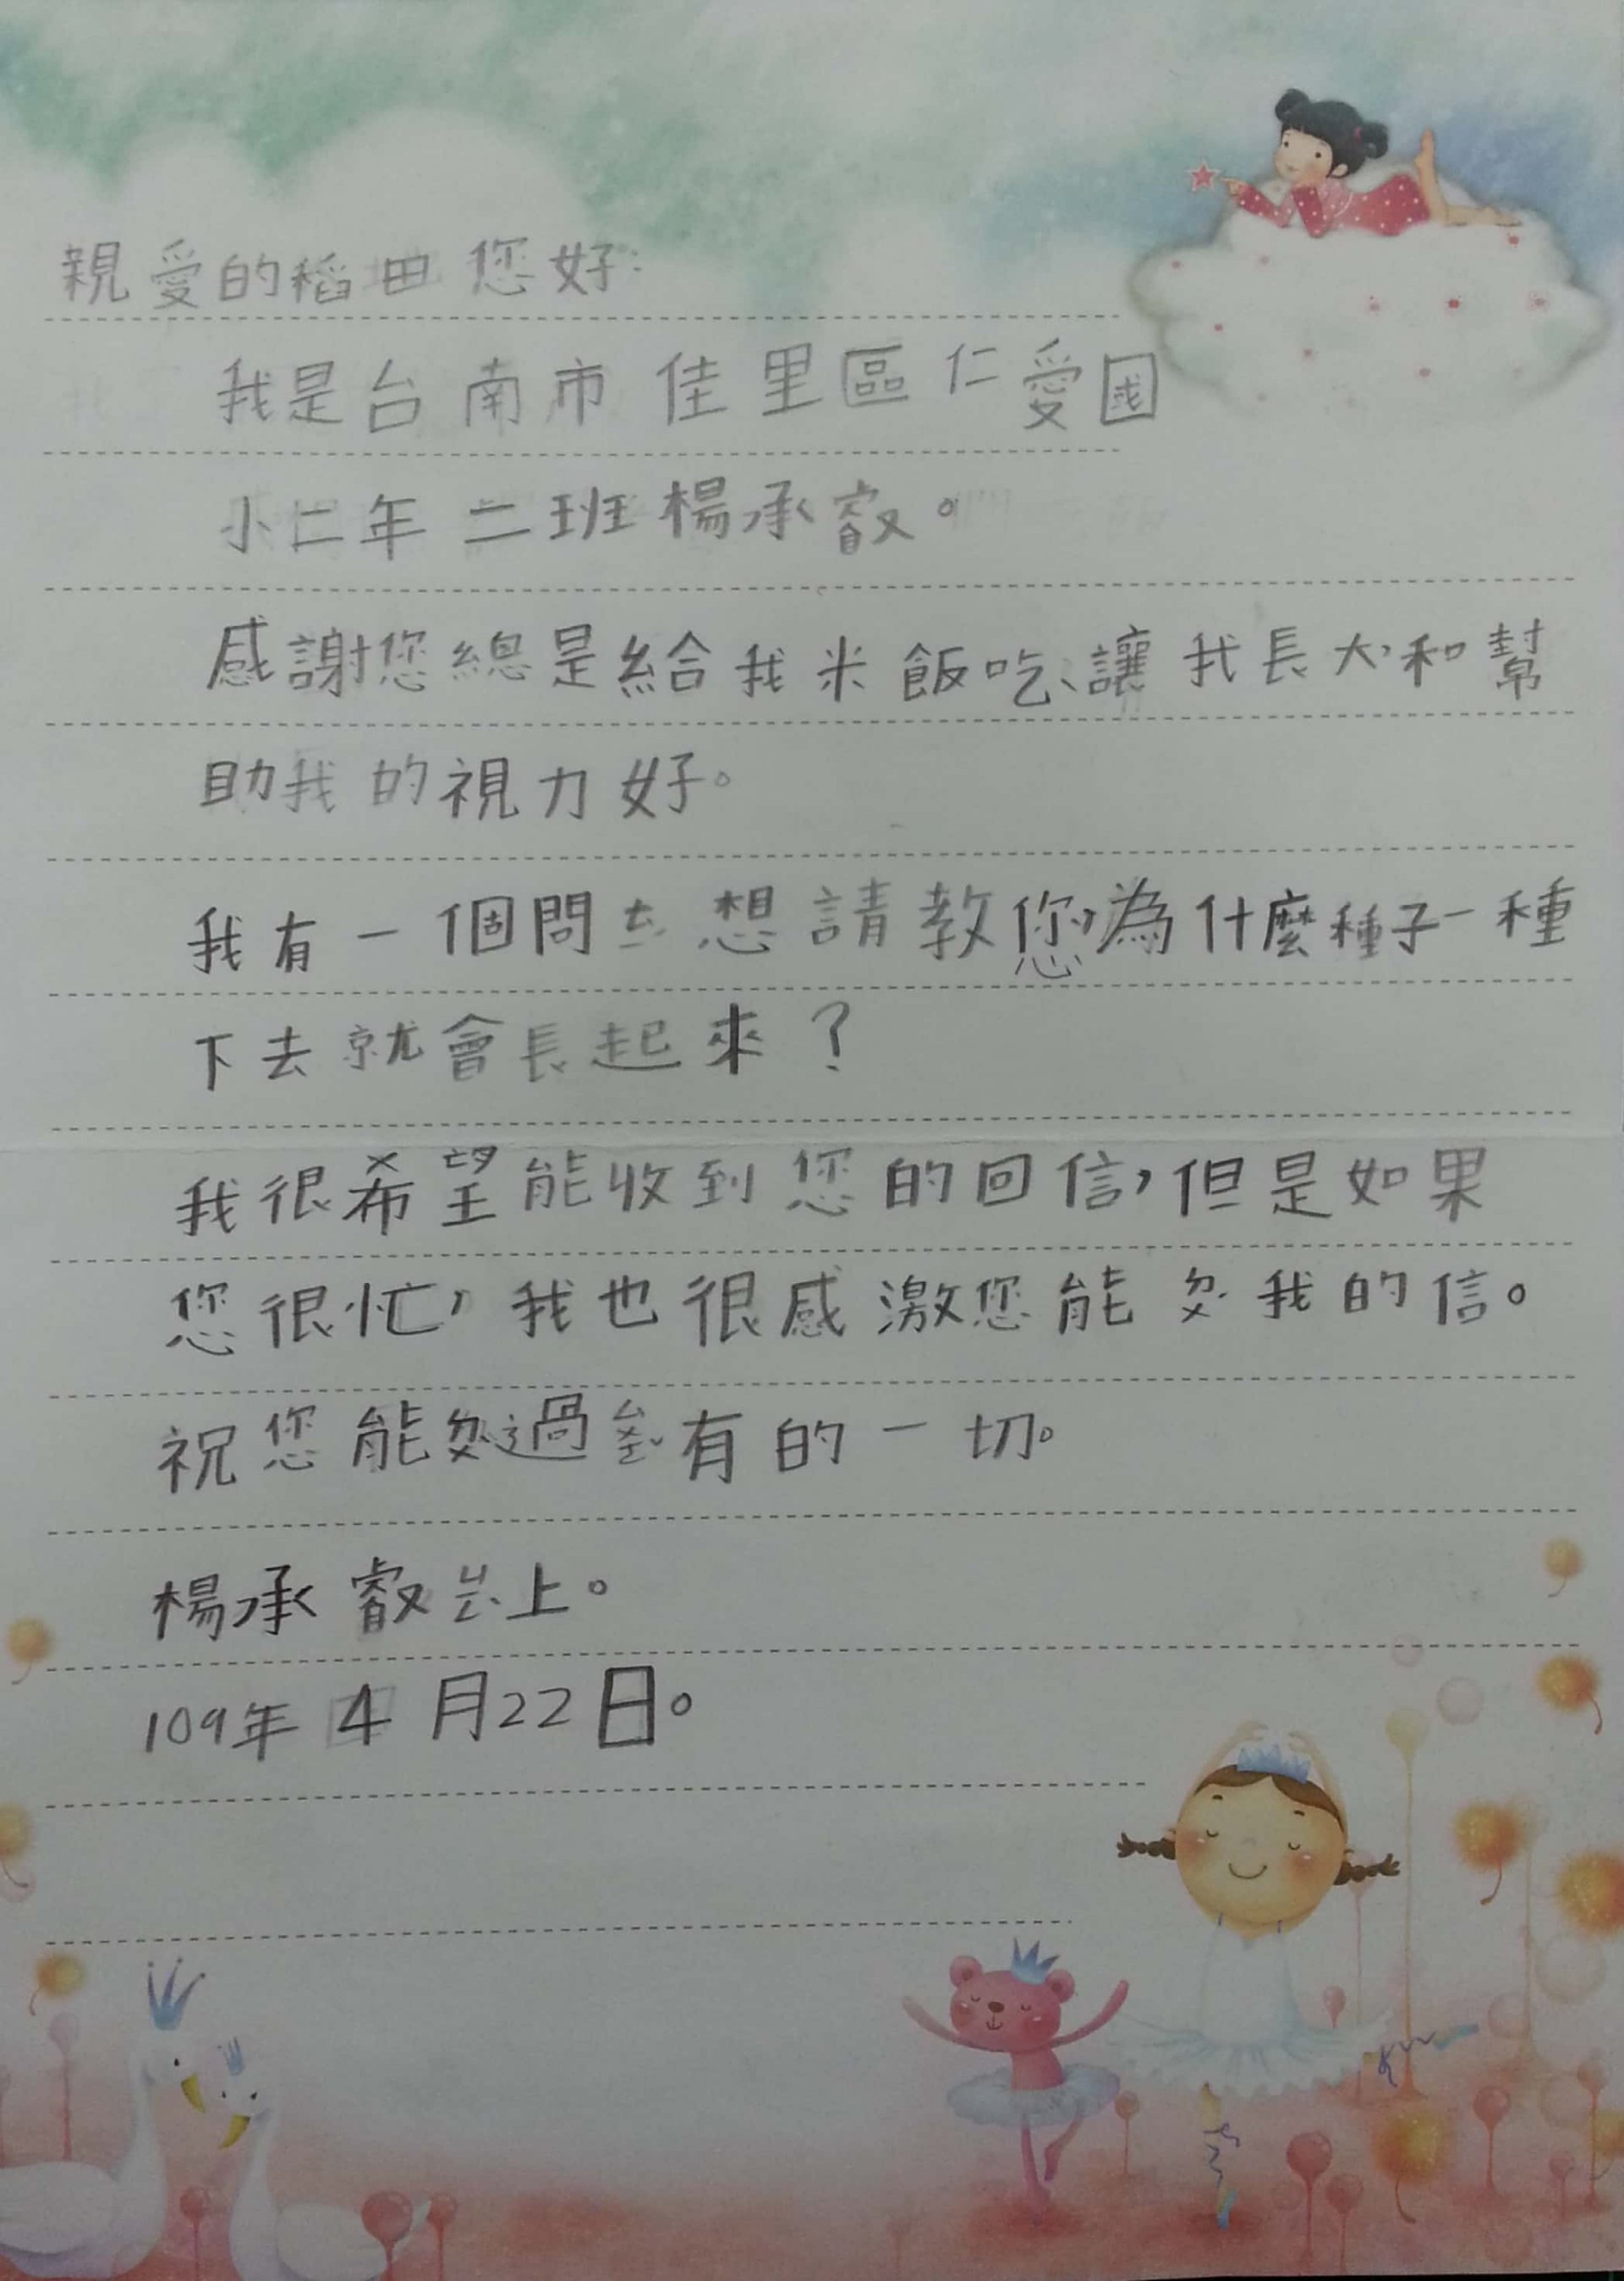 親愛的稻田您好:
我是台南市佳里區仁愛國
小二年二班楊承叡。
感謝您總是給我米飯吃、讓我長大和幫
助我的視力好。
我有一個問ㄊㄧˊ想請教您,為什麼種子一種
下去就會長起來?
我很希望能收到您的回信,但是如果
您很忙,我也很感激您能ㄍㄡˋ我的信。
祝您能ㄍㄡˋ過有的一切。
楊承叡上。
109年4月22日。